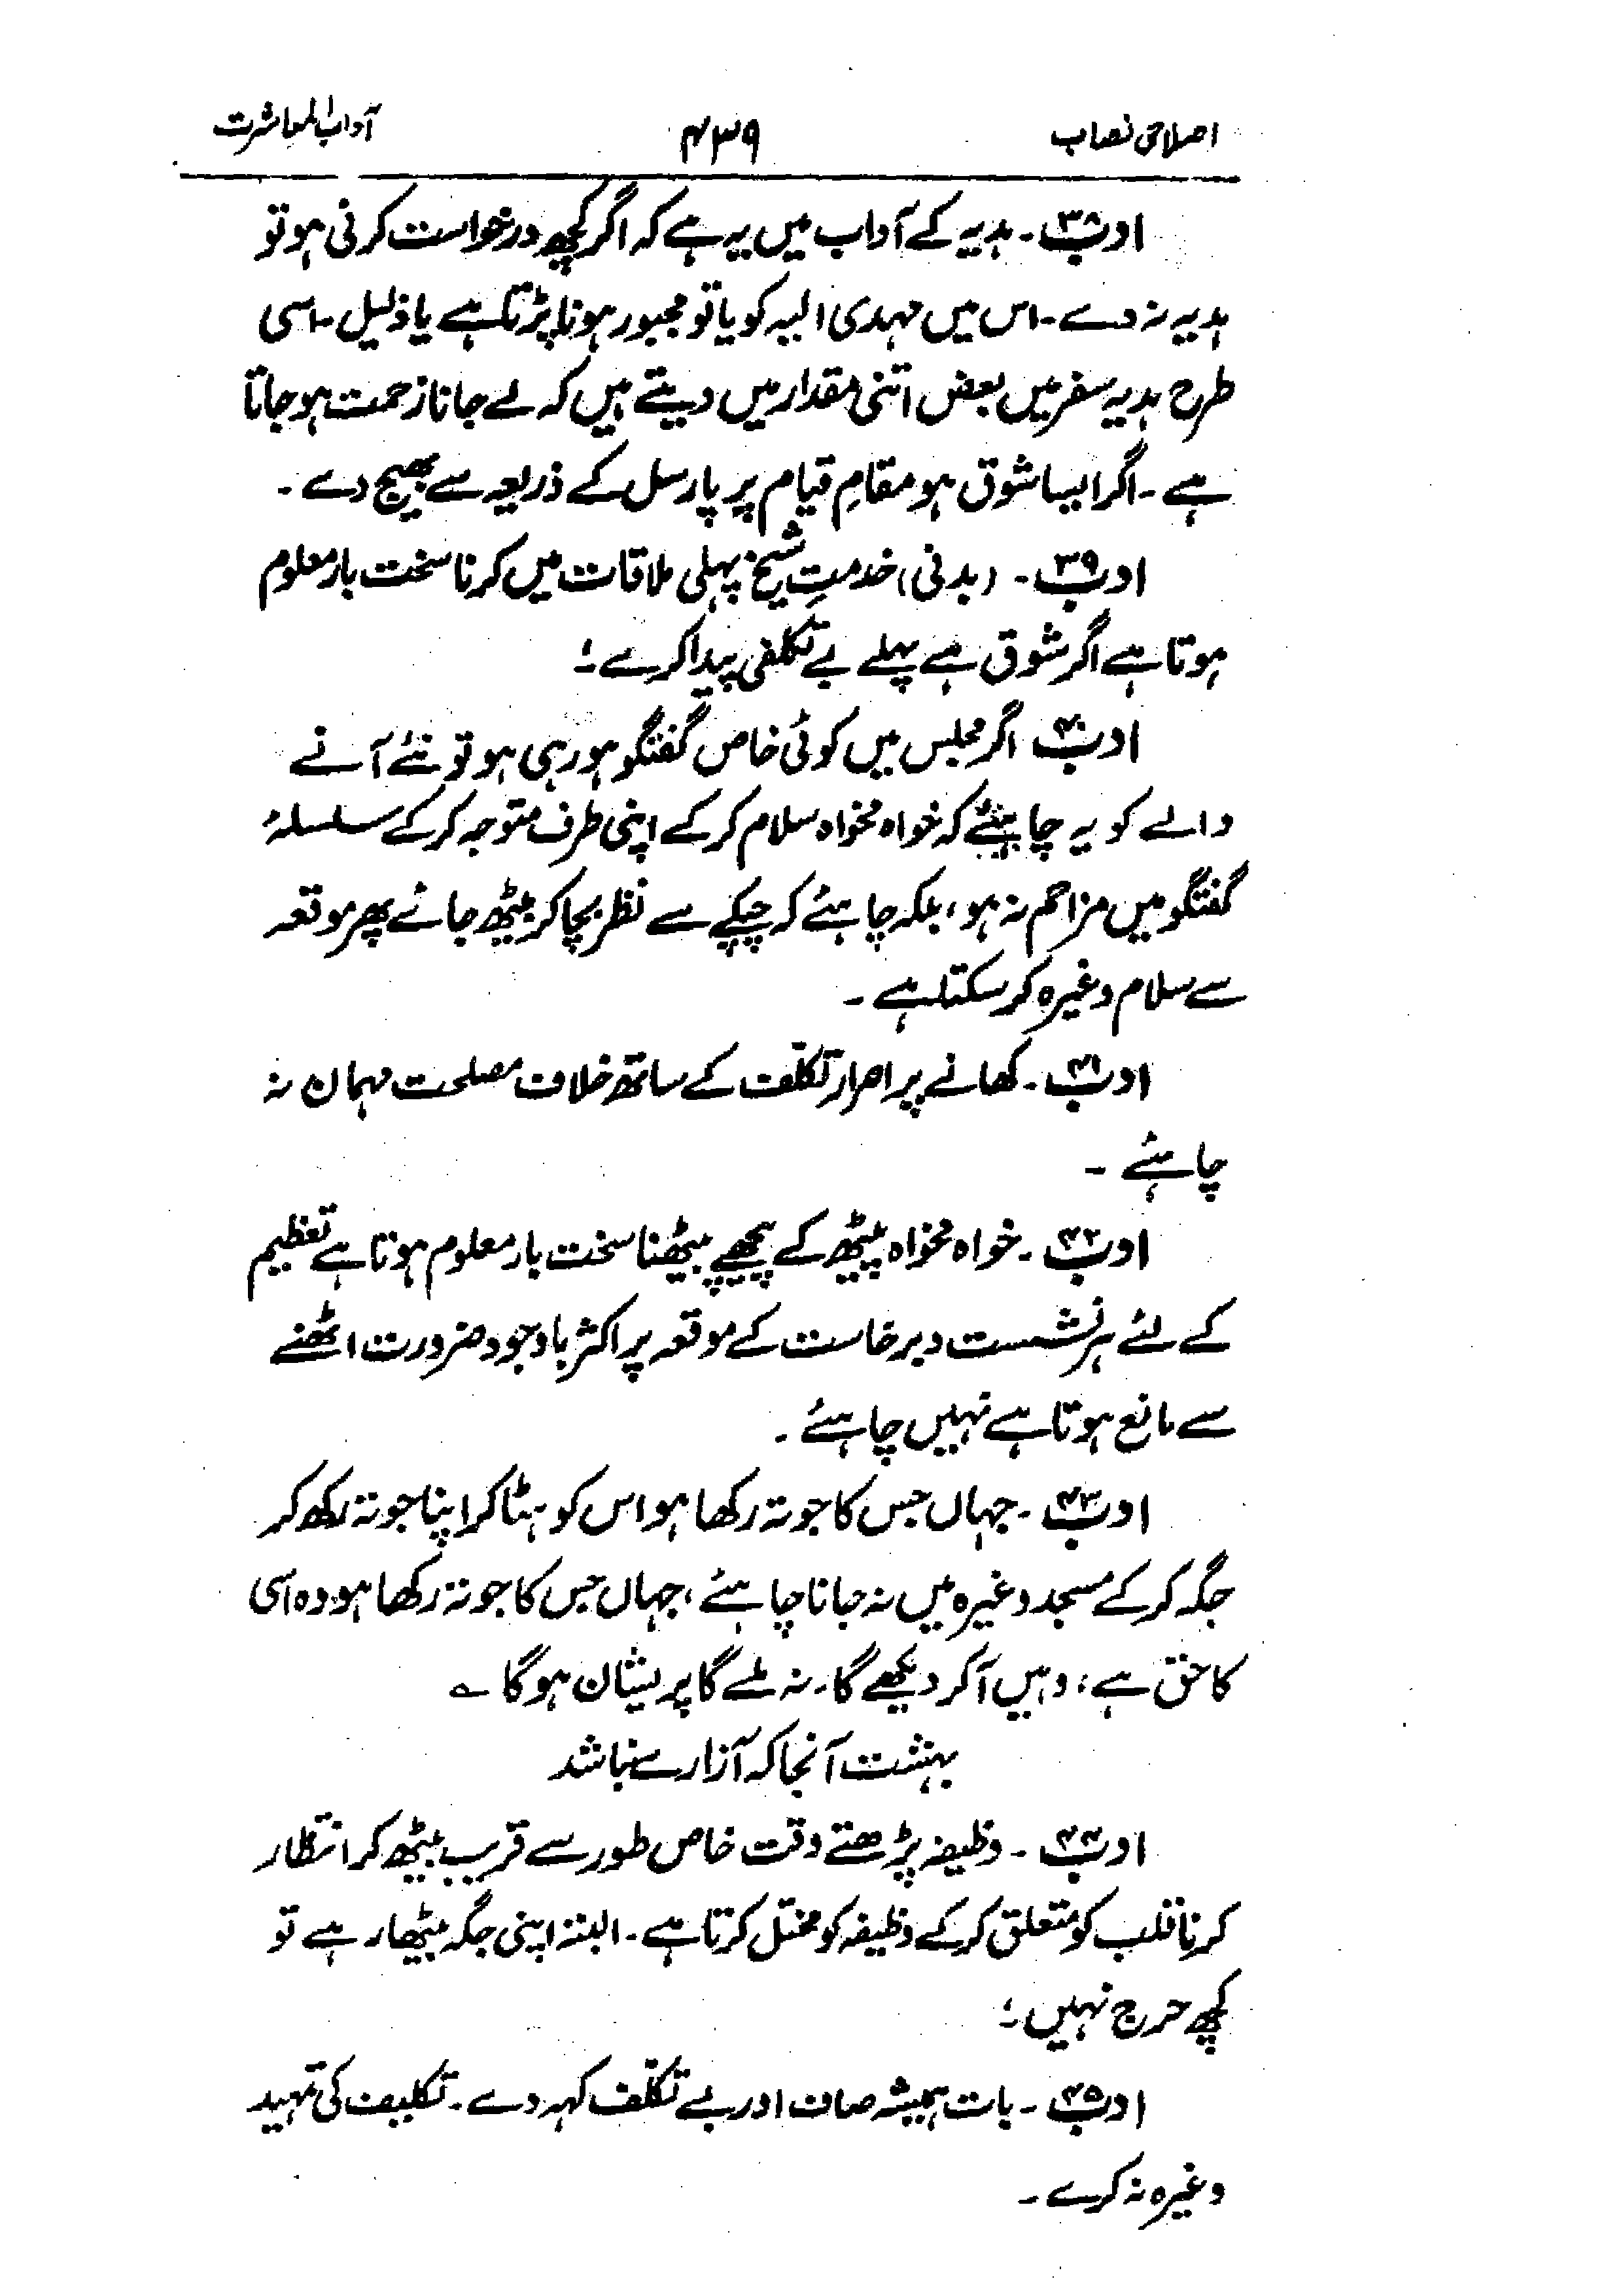 اصلاحی نصاب ۴۳۹ آداب المعاشرت
ادب ۳۸۔ ہدیہ کے آداب میں یہ ہے کہ اگر کچھ درخواست کرنی ہو تو
ہدیہ نہ دے۔ اس میں مہدی الیہ کو یا تو مجبور ہونا پڑتا ہے یا ذلیل۔ اسی
طرح ہدیہ سفر میں بعض اتنی مقدار میں دیتے ہیں کہ لے جانا زحمت ہو جاتا
ہے۔ اگر ایسا شوق ہو مقامِ قیام پر پارسل کے ذریعہ سے بھیج دے۔
ادب ۳۹۔ (بدنی) خدمتِ شیخ پہلی ملاقات میں کرنا سخت بار معلوم
ہوتا ہے اگر شوق ہے پہلے بے تکلفی پیدا کرے ؛
ادب ۴۰ اگر مجلس میں کوئی خاص گفتگو ہو رہی ہو تو نئے آنے
والے کو یہ چاہیئے کہ خواہ مخواہ سلام کر کے اپنی طرف متوجہ کر کے سلسلۂ
گفتگو میں مزاحم نہ ہو، بلکہ چاہئے کہ چپکے سے نظر بچا کر بیٹھ جائے پھر موقعہ
سے سلام وغیرہ کر سکتا ہے۔
ادب ۴۱۔ کھانے پر اصرار تکلّف کے ساتھ خلاف مصلحت مہمان نہ
چاہئے۔
ادب ۴۲۔ خواہ مخواہ پیٹھ کے پیچھے بیٹھنا سخت بار معلوم ہوتا ہے تعظیم
کے لئے ہر نشست و برخاست کے موقعہ پر اکثر باوجود ضرورت اٹھنے
سے مانع ہوتا ہے نہیں چاہئے۔
ادب ۴۳۔ جہاں جس کا جوتہ رکھا ہو اس کو ہٹا کر اپنا جوتہ رکھ کر
جگہ کر کے مسجد وغیرہ میں نہ جانا چاہئے، جہاں جس کا جوتہ رکھا ہو وہ اسی
کا حق ہے، وہیں آکر دیکھے گا۔ نہ ملے گا پریشان ہوگا ؎
بہشت آنجا کہ آزارے نباشد
ادب ۴۴۔ وظیفہ پڑھتے وقت خاص طور سے قریب بیٹھ کر انتظار
کرنا قلب کو متعلق کر کے وظیفہ کو مختل کرتا ہے۔ البتہ اپنی جگہ بیٹھا رہے تو
کچھ حرج نہیں ؛
ادب ۴۵۔ بات ہمیشہ صاف اور بے تکلّف کہہ دے۔ تکلیف کی تمہید
وغیرہ نہ کرے۔